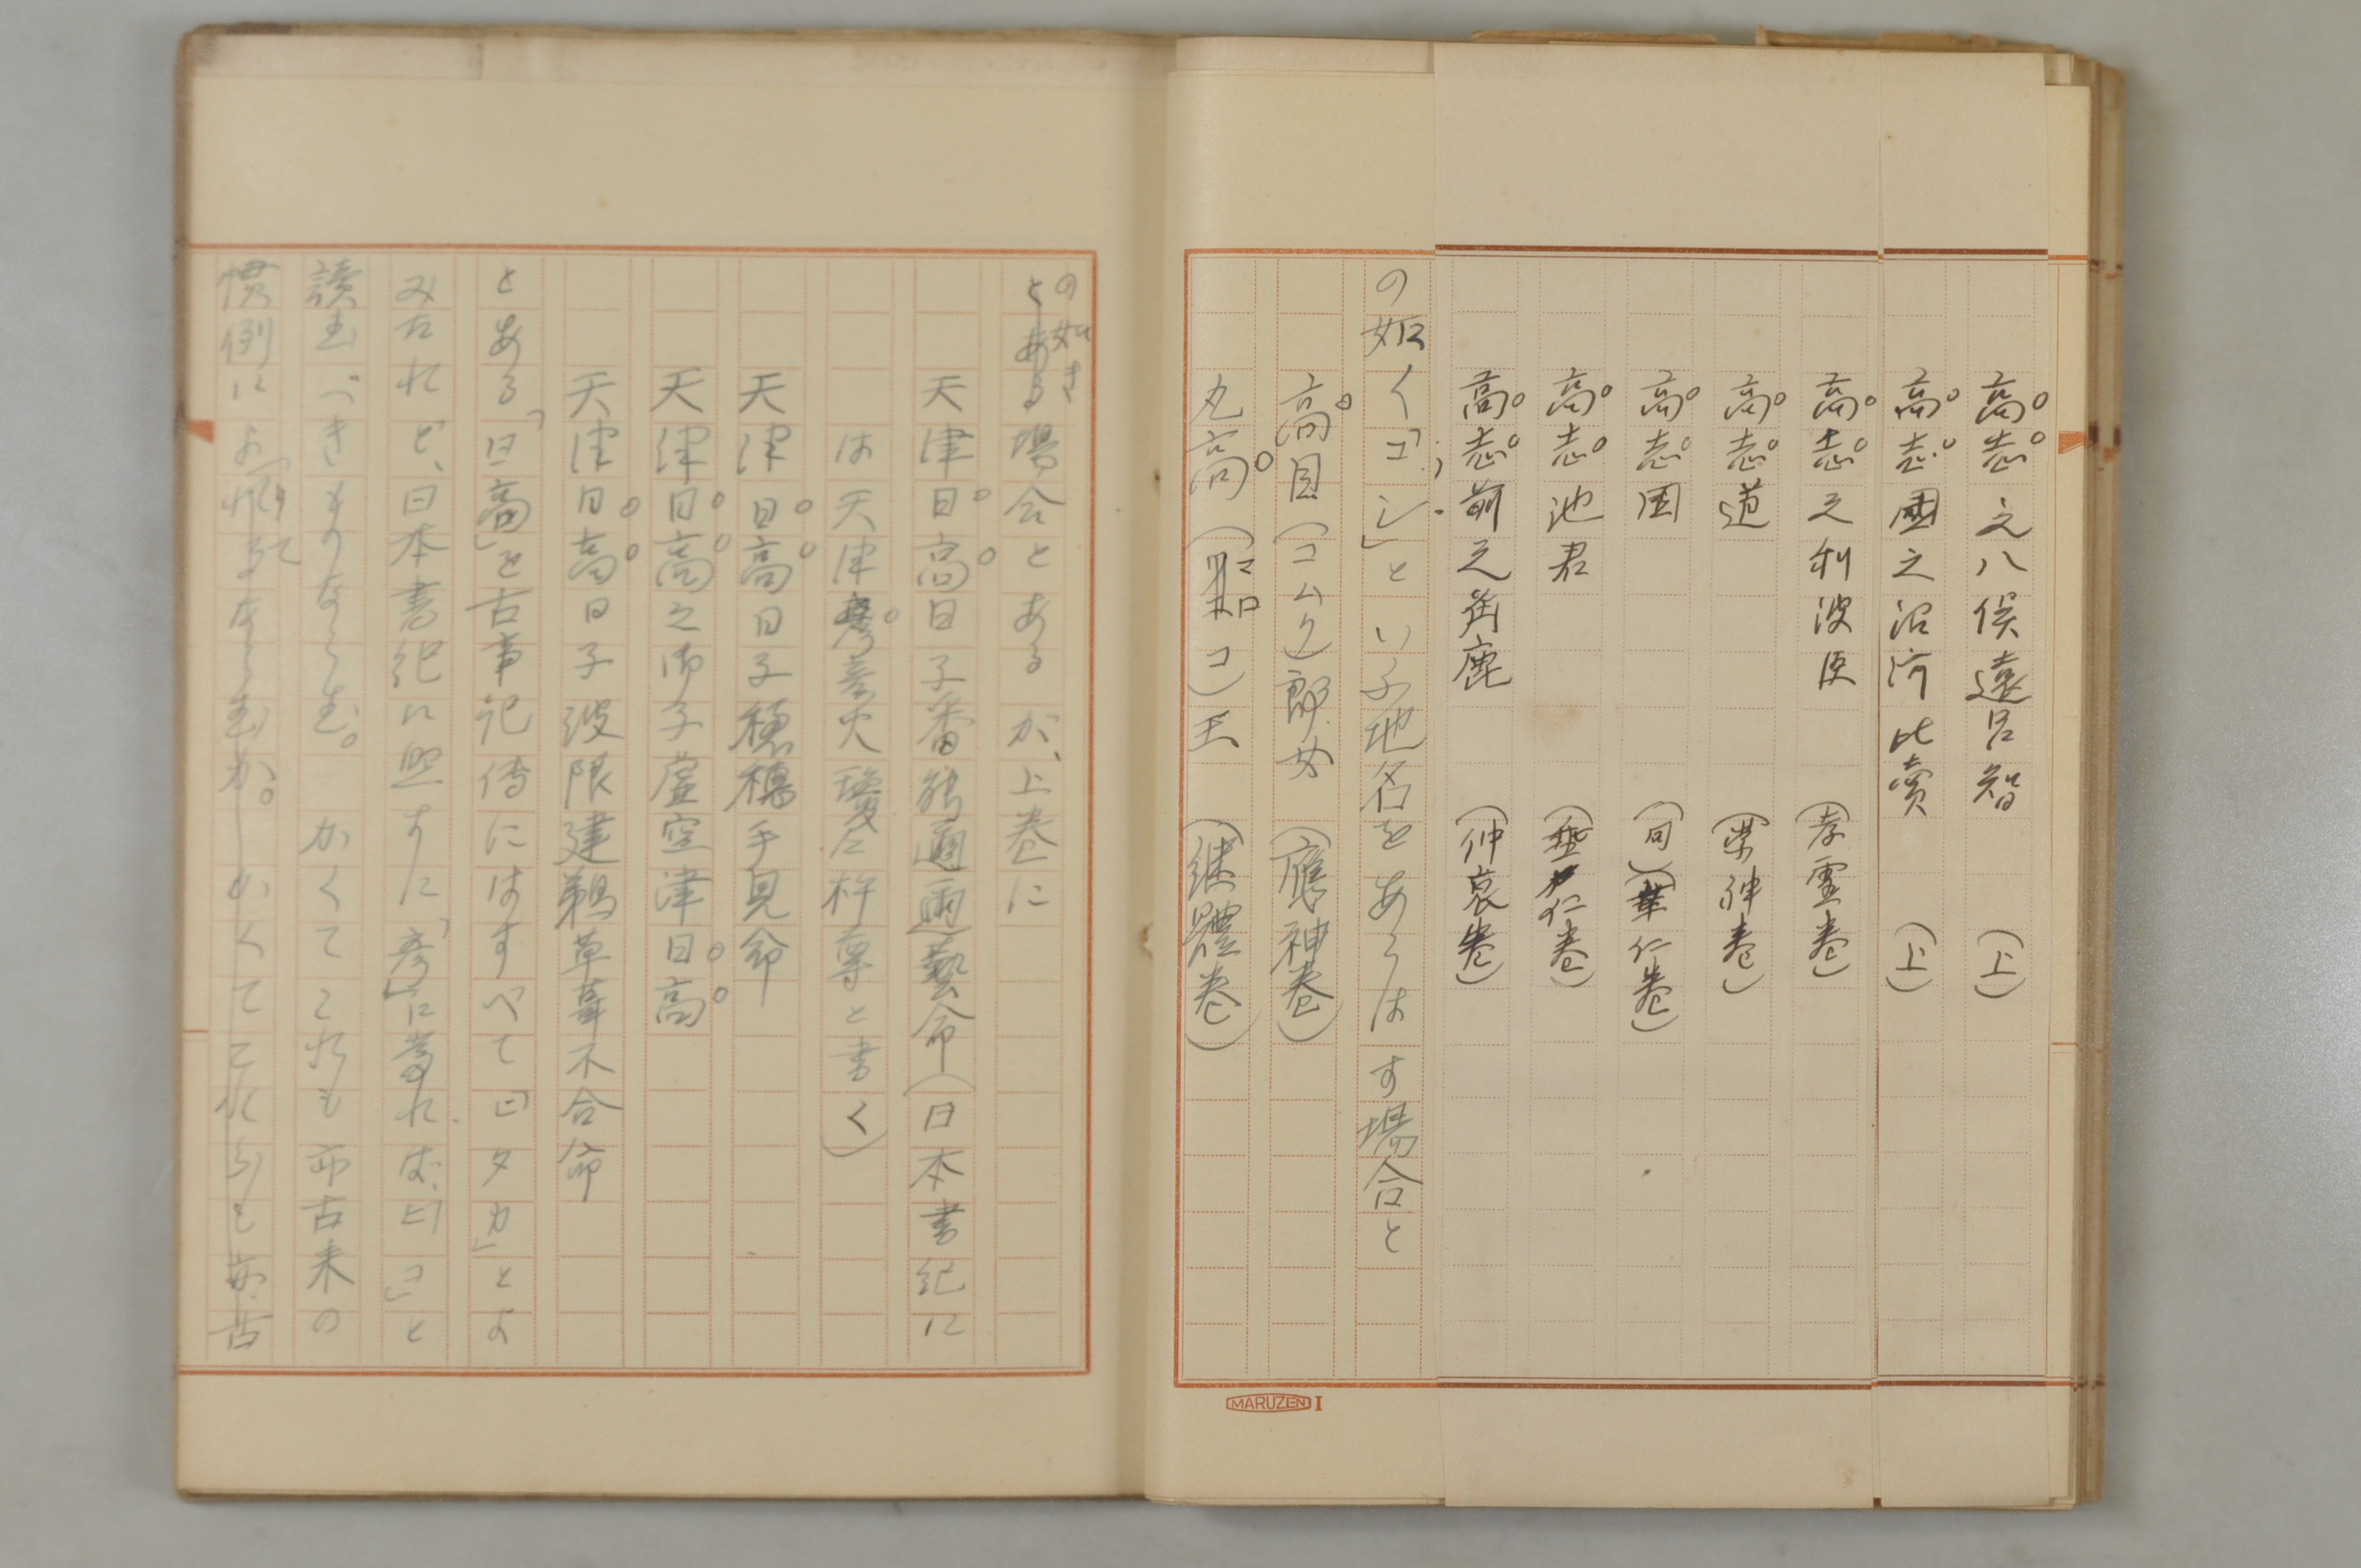 高志之八俣遠呂智　(上)
高志國之沼河比賣　(上)
高志之利波臣　(孝霊巻)
高志道　(崇神巻)
高志国　(同)(垂仁巻)
高志池君　(垂仁巻)
高志前之角鹿　(仲哀巻)
の如く「コシ」といふ地名をあらはす場合と
高目(コムク)郎女　(應神巻)
丸高(マロコ)王　(継體巻)
MARUZEN I
の如き
とある場合とあるが、上巻に
天津日高日子番能邇邇藝命(日本書紀に
は天津彦彦火瓊瓊杵尊と書く)
天津日高日子穂穂手見命
天津日高之御子虚空津日高
天津日高日子波限建鵜草葺不合命
とある「日高」を古事記傳にはすべて「ヒタカ」とよ
みたれど、日本書紀に照すに「彦」に當れば、「ヒコ」と
讀むべきものならむ。　かくてこれも亦古来の
慣例によりてならむか。かくてこれらも亦古